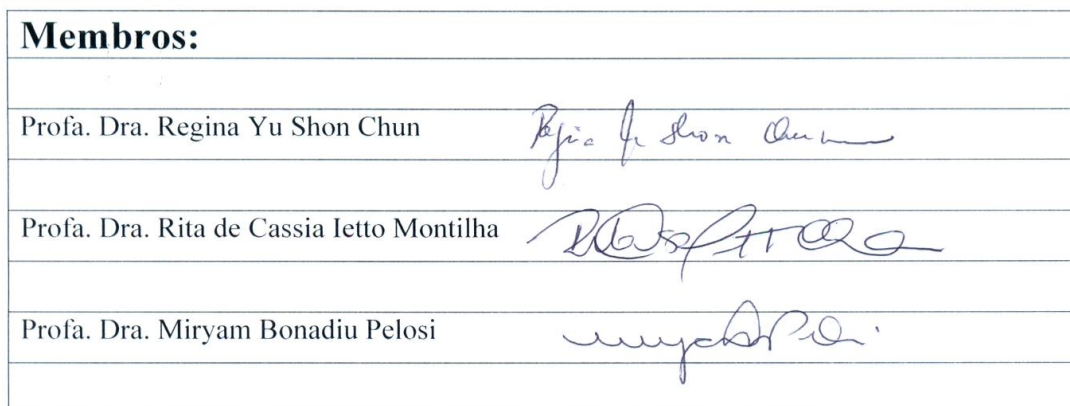 Membros:
Profa. Dra. Regina Yu Shon Chun
Profa. Dra. Rita de Cassia Ietto Montilha
Profa. Dra. Miryam Bonadiu Pelosi